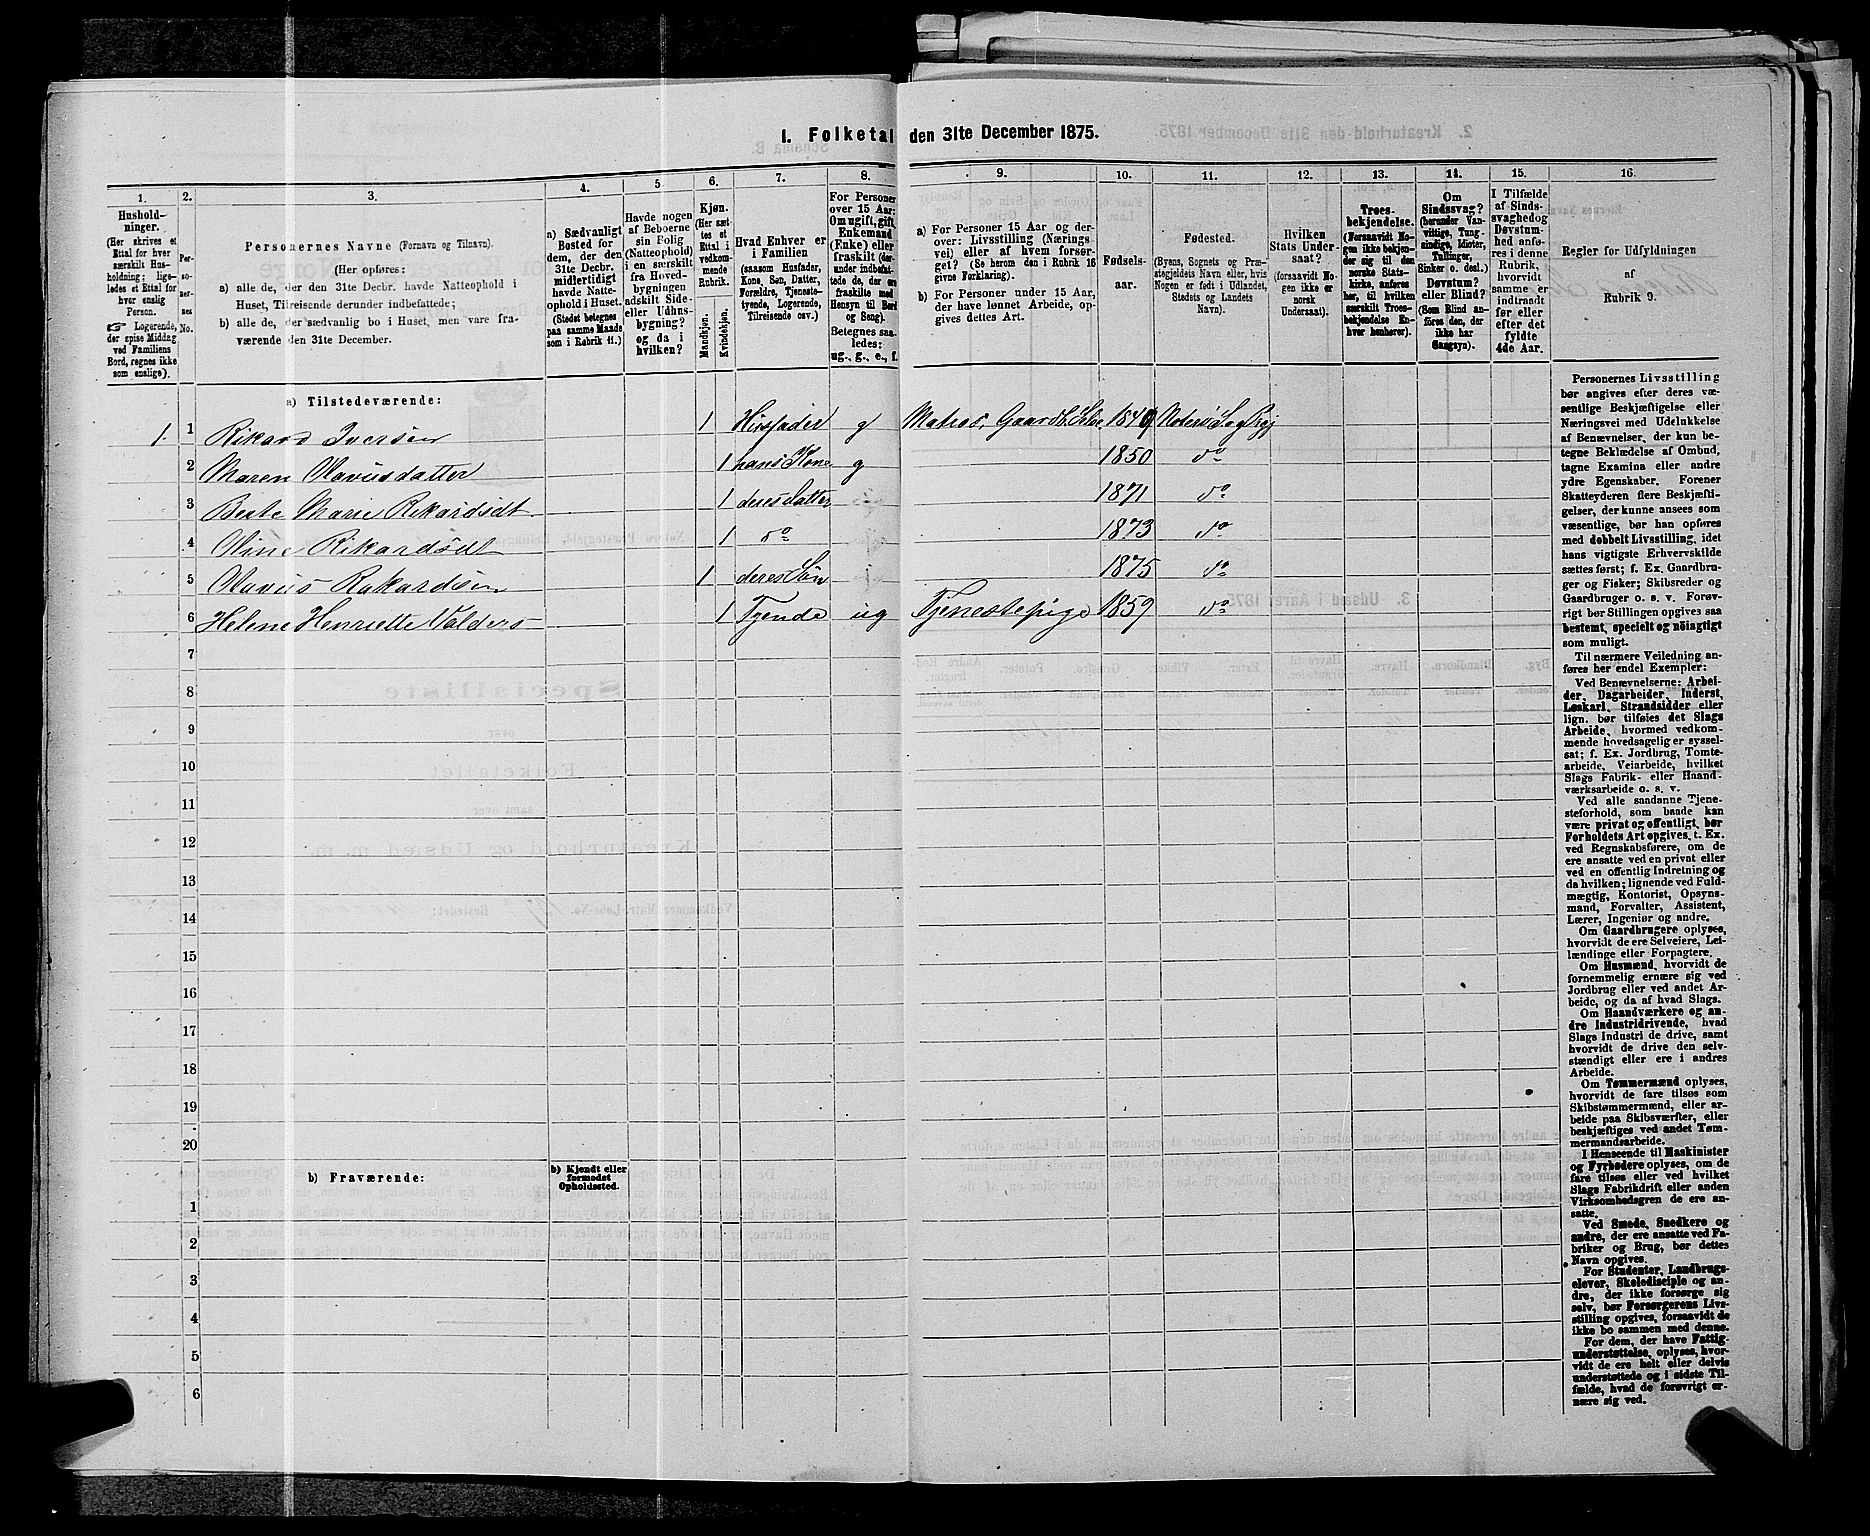 1. Folketal den 31te December 1875.
1. 2. 3. 4. 5. 6. 7. 8. 9. 10. 11. 12. 13. 14. 15. 16.
Hushold-
ninger.
(Her skrives et
Ettal for hver
særskilt Hus-
holdning; lige-
ledes et Ettal for
hver enslig
Person.
☞ Logerende,
der spise Middag
ved Familiens
Bord, regnes ikke
som enslige).
Per-
so-
ner-
nes
No.
Personernes Navne (Fornavn og Tilnavn).
(Her opføres:
a) alle de, der den 31te Decbr. havde Natteophold i
Huset, Tilreisende derunder indbefattede;
b) alle de, der sædvanlig bo i Huset, men vare fra-
værende den 31te December.
a) Sædvanligt
Bosted for
dem, der den
31te Decbr.
midlertidigt
havde Natte-
ophold i Huset.
(Stedet betegnes
paa samme Maade
som i Rubrik 11.)
Havde nogen
af Beboerne
sin Bolig
(Natteophold)
i en særskilt
fra Hoved-
bygningen
adskilt Side-
eller Udhus-
bygning?
og da i
hvilken?
Kjøn.
(Her sæt-
tes et
Ettal i
vedkom-
mende
Rubrik.
Mandkjøn.
Kvindekjøn.
Hvad Enhver er
i Familien
(saasom Husfader,
Kone, Søn, Datter,
Forældre, Tjeneste-
tyende, Logerende,
Tilreisende osv.)
For Personer
over 15 Aar:
Om ugift, gift,
Enkemand
(Enke) eller
fraskilt (der-
under indbefat-
tede de, der ere
fraskilte med
Hensyn til Bord
og Seng).
Betegnes saa-
ledes:
ug., g., e., f.
a) For Personer 15 Aar og der-
over: Livsstilling (Nærings
vei) eller af hvem forsør-
get? (Se herom den i Rubrik 16
givne Forklaring).
b) For Personer under 15 Aar,
der have lønnet Arbeide, op-
gives dettes Art.
Fødsels-
aar.
Fødested.
(Byens, Sognets og Præ-
stegjeldets Navn eller, hvis
Nogen er født i Udlandet,
Stedets og Landets
Navn).
Hvilken
Stats Under-
saat?
(forsaavidt No-
gen ikke er
norsk
Undersaat).
Troes-
bekjendelse.
(Forsaavidt No-
gen ikke bekjen-
der sig til den
norske Stats-
kirke, anføres
her, til hvilken
særskilt Troes-
bekjendelse En-
hver henhører).
Om
Sindssvag?
(herunder Van-
vittige, Tung-
sindige, Idioter,
Tullinger,
Sinker o. desl.)
Døvstum?
eller Blind?
(Som Blind an-
føres den, der
ikke har
Gangsyn).
I Tilfælde
af Sinds-
svaghed og
Døvstum-
hed anfø-
res i denne
Rubrik,
hvorvidt
samme er
indtraadt
før eller
efter det
fyldte
4de Aar.
Regler for Udfyldningen
af
Rubrik 9.
a) Tilstedeværende:
1. 1 Rikard Iversen 1 Husfader g Matros, Gaardb. 1849
2 Maren Olavusdatter 1 hans Kone g 1850 do
3 Berte Marie Rikardsdt 1 deres Datter 1871 do
4 Oline Rikardsdt 1 do 1873 do
5 Olavus Rikardsen 1 deres Søn 1875 do
6 Helene Henriette Valders 1 Tyende ug Tjenestepige 1859 do
7
8
9
10
11
12
13
14
15
16
17
18
19
20
b) Fraværende:
b) Kjendt eller
formodet
Opholdssted.
1
2
3
4
5
6
Personernes Livsstilling
bør angives efter deres væ-
sentlige Beskjæftigelse eller
Næringsvei med Udelukkelse
af Benævnelser, der kun be-
tegne Beklædelse af Ombud,
tagne Examina eller andre
ydre Egenskaber. Forener
Skatteyderen flere Beskjæfti-
gelser, der kunne ansees som
væsentlige, bør han opføres
med dobbelt Livsstilling, idet
hans vigtigste Erhvervskilde
sættes først; f. Ex. Gaardbru-
ger og Fisker; Skibsreder og
Gaardbruger o. s. v. Forøv-
rigt bør Stillingen opgives saa
bestemt, specielt og nöiagtigt
som muligt.
Til nærmere Veiledning an-
føres her endel Exempler:
Ved Benævnelserne: Arbei-
der, Dagarbeider, Inderst,
Løskarl, Strandsidder eller
lign. bør tilføies det Slags
Arbeide, hvormed vedkom-
mende hovedsagelig er syssel-
sat; f. Ex. Jordbrug, Tomte-
arbeide, Veiarbeide, hvilket
Slags Fabrik- eller Haand-
værksarbeide o. s. v.
Ved alle saadanne Tjene-
steforhold, som baade kan
være privat og offentligt, bør
Forholdets Art opgives, t. Ex.
ved Regnskabsførere, om de
ere ansatte ved en privat eller
ved en offentlig Indretning og
da hvilken; lignende ved Fuld-
mægtig, Kontorist, Opsyns-
mand, Forvalter, Assistent,
Lærer, Ingeniør og andre.
Om Gaardbrugere oplyses,
hvorvidt de ere Selveiere, Lei-
lændinge eller Forpagtere.
Om Husmænd, hvorvidt de
fornemmelig ernære sig ved
Jordbrug eller ved andet Ar-
beide, og da af hvad Slags.
Om Haandværkere og an-
dre Industridrivende, hvad
Slags Industri de drive, samt
hvorvidt de drive den selv-
stændigt eller ere i andres
Arbeide.
Om Tømmermænd oplyses,
hvorvidt de fare tilsøs som
Skibstømmermænd, eller ar-
beide paa Skibsværfter, eller
beskjæftiges ved andet Tøm-
mermandsarbeide.
I Henseende til Maskinister
og Fyrbødere oplyses, om de
fare tilsøs eller ved hvilket
Slags Fabrikdrift eller anden
Virksomhedsgren de ere an-
satte.
Ved Smede, Snedkere og
andre, der ere ansatte ved Fa-
briker og Brug, bør dettes
Navn opgives.
For Studenter, Landbrugs-
elever, Skoledisciple og an-
dre, der ikke forsørge sig
selv, bør Forsørgerens Livs-
stilling opgives, forsaavidt de
ikke bo sammen med denne.
For dem, der have Fattig-
understøttelse, oplyses, hvor-
vidt de ere helt eller delvis
understøttede og i sidste Til-
fælde, hvad de forøvrigt er-
nære sig ved.